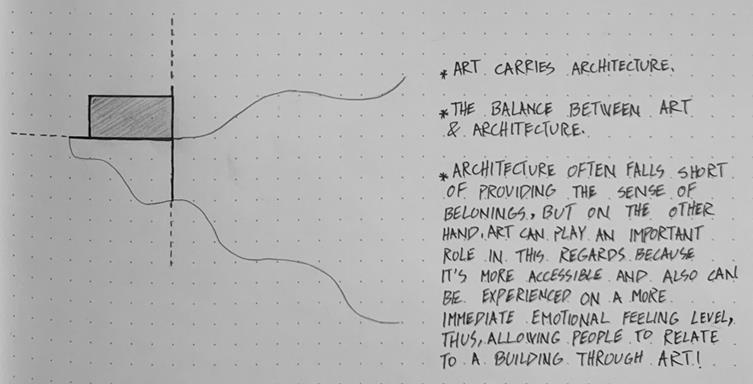 *ART CARRIES ARCHITECTURE.
*THE BALANCE BETWEEN ART
& ARCHITECTURE.
*ARCHITECTURE OFTEN FALLS SHORT
OF PROVIDING THE SENSE OF
BELONINGS, BUT ON THE OTHER
HAND, ART CAN PLAY AN IMPORTANT
ROLE IN THIS REGARDS BECAUSE
IT'S MORE ACCESSIBLE AND ALSO CAN
BE EXPERIENCED ON A MORE
IMMEDIATE EMOTIONAL FEELING LEVEL,
THUS, ALLOWING PEOPLE TO RELATE
TO A BUILDING THROUGH ART!